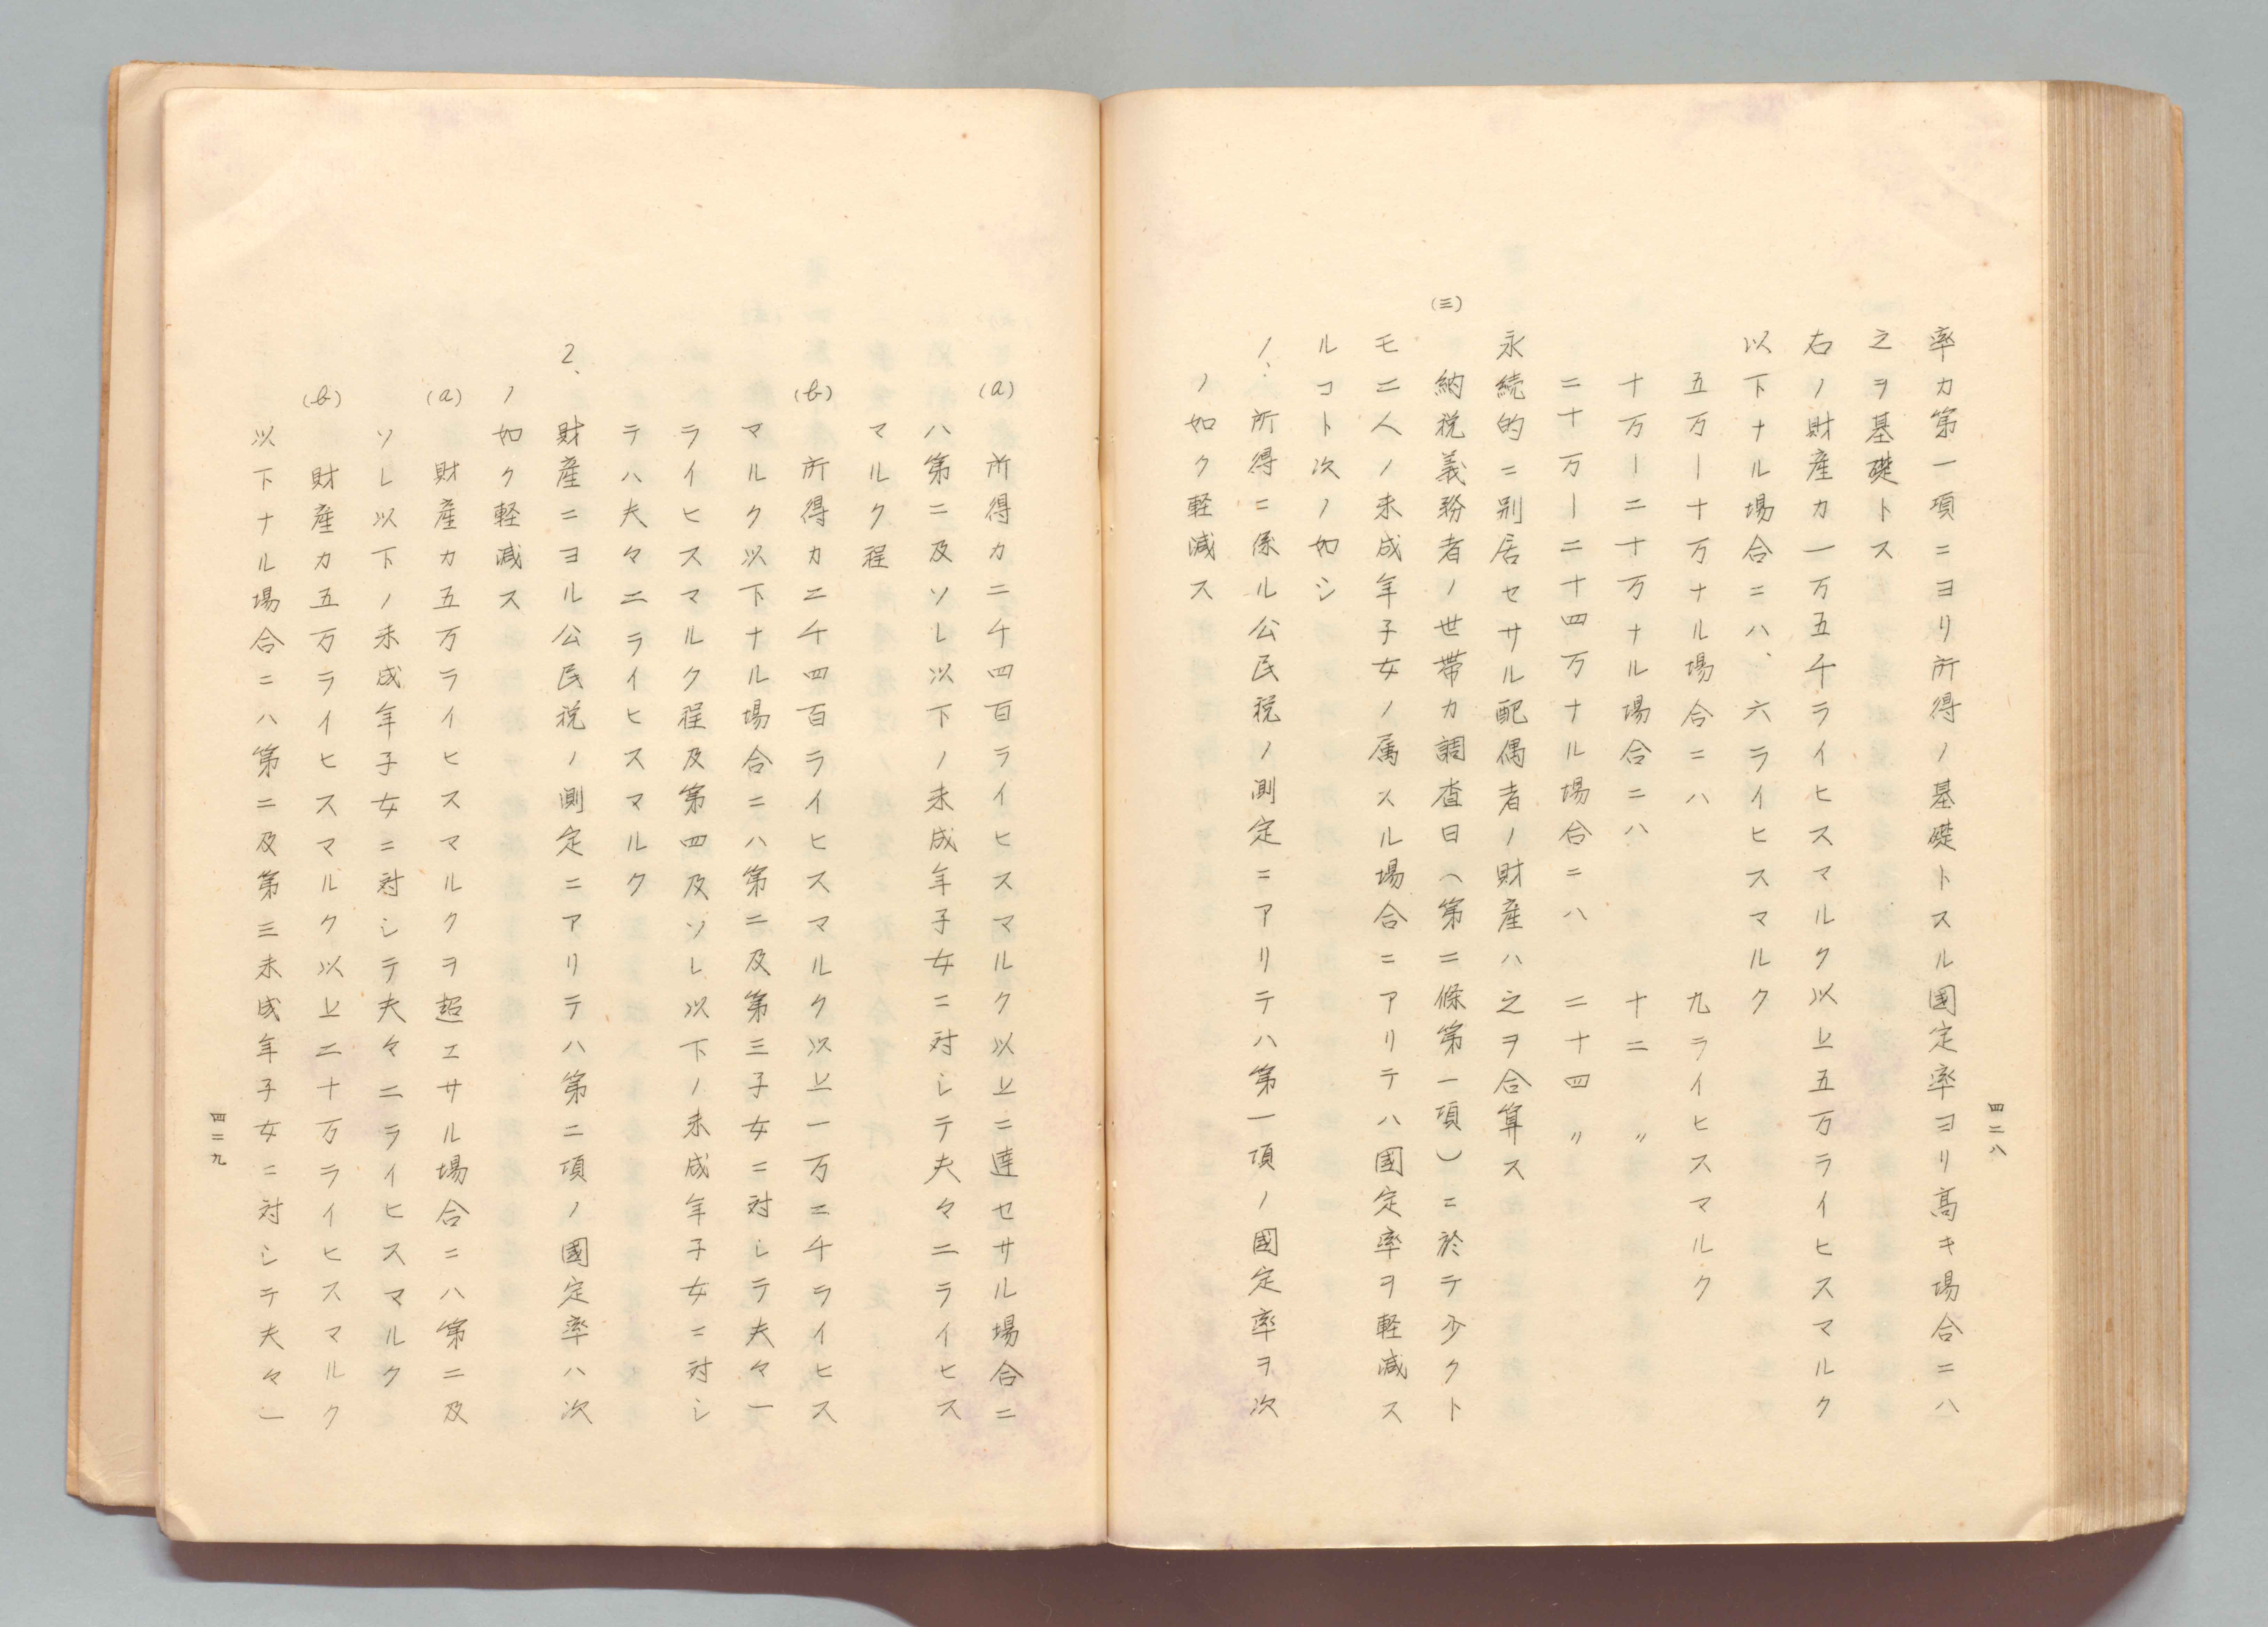 四二八
率カ第一項ニヨリ所得ノ基礎トスル國定率ヨリ高キ場合ニハ
之ヲ基礎トス
右ノ財産カ一万五千ライヒスマルク以上五万ライヒスマルク
以下ナル場合ニハ、六ライヒスマルク
五万ー十万ナル場合ニハ 九ライヒスマルク
十万ー二十万ナル場合ニハ 十二 〃
二十万ー二十四万ナル場合ニハ 二十四 〃
永続的ニ別居セサル配偶者ノ財産ハ之ヲ合算ス
(三) 納税義務者ノ世帯カ調査日(第二條第一項)ニ於テ少クト
モ二人ノ未成年子女ノ属スル場合ニアリテハ國定率ヲ軽減ス
ルコト次ノ如シ
1、所得ニ係ル公民税ノ測定ニアリテハ第一項ノ國定率ヲ次
ノ如ク軽減ス
(a) 所得カ二千四百ライヒスマルク以上ニ達セサル場合ニ
ハ第二及ソレ以下ノ未成年子女ニ対シテ夫々二ライヒス
マルク程
(b) 所得カ二千四百ライヒスマルク以上一万二千ライヒス
マルク以下ナル場合ニハ第二及第三子女ニ対シテ夫々一
ライヒスマルク程及第四及ソレ以下ノ未成年子女ニ対シ
テハ夫々二ライヒスマルク
2、財産ニヨル公民税ノ測定ニアリテハ第二項ノ國定率ハ次
ノ如ク軽減ス
(a) 財産カ五万ライヒスマルクヲ超エサル場合ニハ第二及
ソレ以下ノ未成年子女ニ対シテ夫々二ライヒスマルク
(b) 財産カ五万ライヒスマルク以上二十万ライヒスマルク
以下ナル場合ニハ第二及第三未成年子女ニ対シテ夫々一
四二九